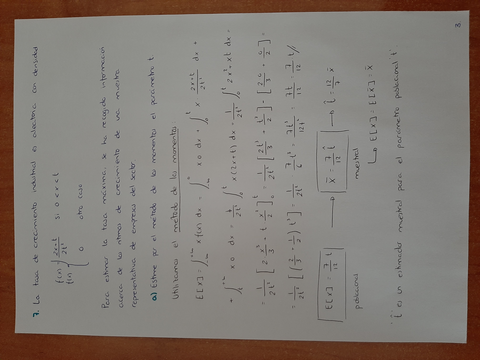 7. La tasa de crecimiento industrial es aleatoria con densidad
f(x) = { 2x+t / 2t² si 0<x<t
0 otro caso
Para estimar la tasa máxima, se ha recogido información
acerca de los ritmos de crecimiento de una muestra
representativa de empresas del sector
a) Estime por el método de los momentos el parámetro t.
Utilizamos el método de los momentos
E[X] = ∫ x f(x) dx = ∫ x 0 dx + ∫ x 2x+t / 2t² dx +
+ ∫ x 0 dx = 1/2t² ∫ x(2x+t) dx = 1/2t² ∫ 2x² + xt dx =
= 1/2t² [2 x³/3 + t x²/2] = 1/2t² [2t³/3 + t³/2] - [2·0/3 + 0/2] =
= 1/2t² [(2/3 + 1/2) t³] = 1/2t² 7/6 t³ = 7t³/12t² = 7t/12 = 7/12 t //
E[X] = 7/12 t → x̄ = 7/12 t̂ → t̂ = 12/7 x̄
poblacional muestral
↳ E[X] = E[x̄] = x̄
t̂ es un estimador muestral para el parámetro poblacional t
3